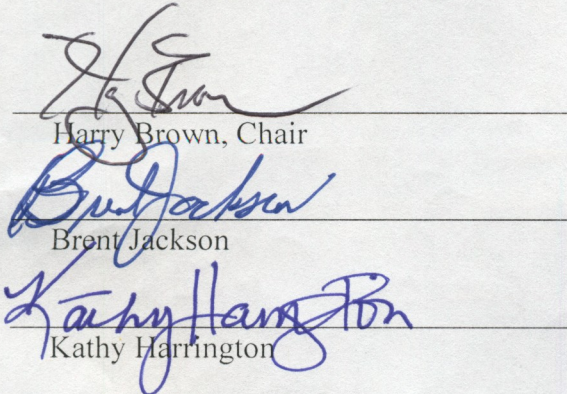 Hy Brown
Harry Brown, Chair
Brent Jackson
Brent Jackson
Kathy Harrington
Kathy Harrington